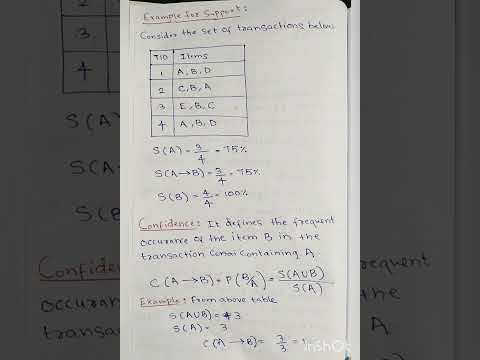 Example for Support:
Consider the set of transactions below
TID Items
1 A, B, D
2 C, B, A
3 E, B, C
4 A, B, D
S(A) = 3/4 = 75%
S(A→B) = 3/4 = 75%
S(B) = 4/4 = 100%
Confidence: It defines the frequent
occurance of the item B in the
transaction Containing A
C (A→B) = P(B/A) = S(AUB)/S(A)
Example: From above table
S(AUB) = 3
S(A) = 3
C(A→B) = 3/3 = 1
InShot
2
3
4
S(A)
S(A
S(B)
Confide
occura
transac
C (A
75%
equent
the
A